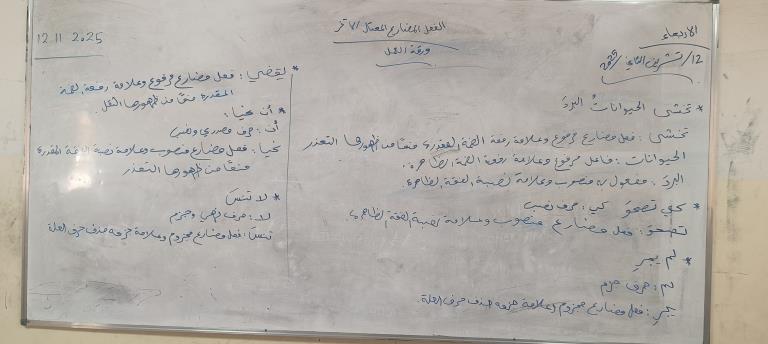 الأربعاء
12/ تشرين الثاني/ 2025
الفعل المضارع المعتل الآخر
ورقة العمل
12.11.2025
* تخشى الحيوانات البردَ
تخشى: فعل مضارع مرفوع وعلامة رفعه الضمة المقدرة منعًا من ظهورها التعذر
الحيوانات: فاعل مرفوع وعلامة رفعه الضمة الظاهرة.
البردَ: مفعول به منصوب وعلامة نصبه الفتحة الظاهرة.
* كي تصحوَ كي: حرف نصب
تصحوَ: فعل مضارع منصوب وعلامة نصبه الفتحة الظاهرة
* لم يجرِ
لم: حرف جزم
يجرِ: فعل مضارع مجزوم وعلامة جزمه حذف حرف العلة.
* يقضي: فعل مضارع مرفوع وعلامة رفعه الضمة
المقدرة منعًا من ظهورها الثقل.
* أن نحيا:
أن: حرف مصدري ونصب
نحيا: فعل مضارع منصوب وعلامة نصبه الفتحة المقدرة
منعًا من ظهورها التعذر
* لا تنسَ
لا: حرف نهي وجزم
تنسَ: فعل مضارع مجزوم وعلامة جزمه حذف حرف العلة